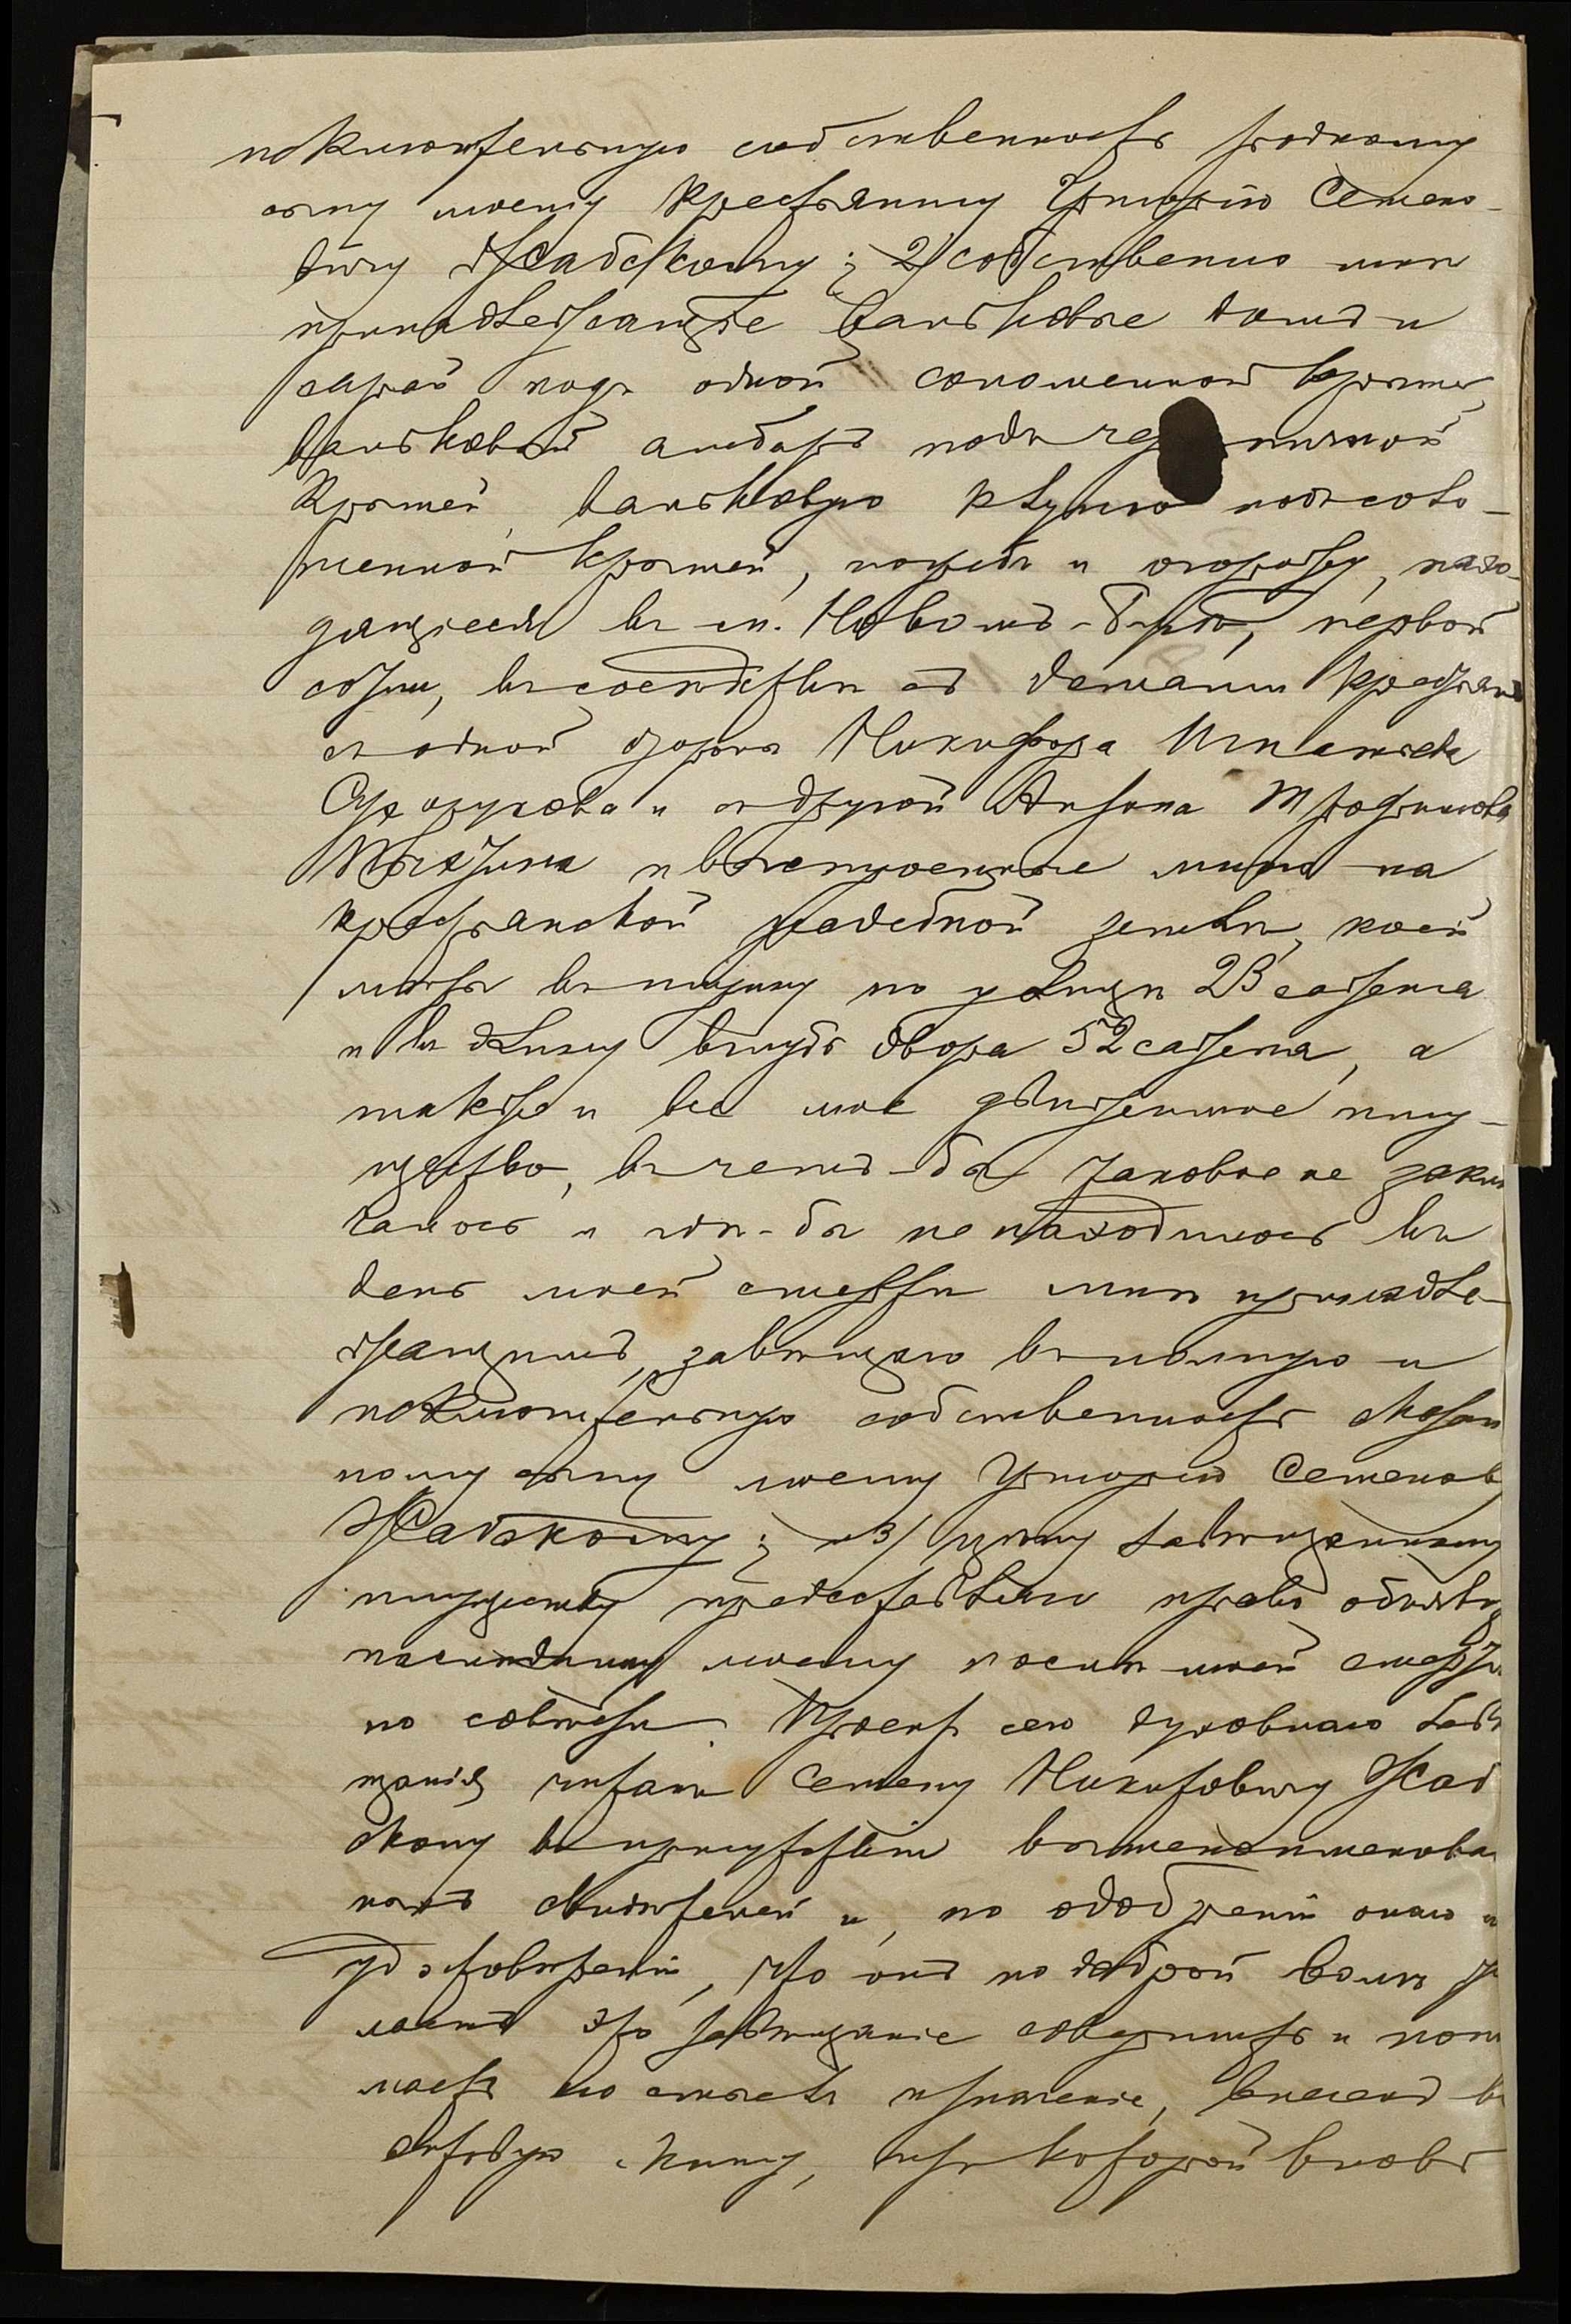 исключительную собственность родному
сыну моему крестьянину Григорію Семено-
вичу Жабскому; 2) собственно мнѣ
принадлежащіе вальковые домъ и
сарай подъ одной соломенной крышей,
вальковый амбаръ подъ че пичной
крышей, вальковую клуню подъ соло-
менной крышей, погребъ и огорожу, нахо-
дящіеся въ сл. Новомъ-Бугѣ, первой
сотни, въ сосѣдствѣ съ домами крестьянъ
съ одной стороны Никифора Игнатьева
и съ другой Антона Трофимова
и выстроенные мною на
крестьянской усадебной землѣ, коей
мѣры въ ширину по улицѣ 23 сажени
и въ длину вглубь двора 52 сажени, а
также и все мое движимое иму-
щество, въ чемъ-бы таковое не заклю
чалось и гдѣ-бы не находилось въ
день моей смерти мнѣ принадле-
жащимъ, завѣщаю въ полную и
исключительную собственность сказан
ному сыну моему Григорію Семенов
Жабскому; и 3) цѣну завѣщанному
имуществу предоставляю право объявить
наслѣднику моему послѣ моей смерти
по совѣсти. Проектъ сего духовнаго завѣ
щанія читанъ Семену Никитовичу Жаб
скому въ присутствіи вышепоименован
ныхъ свидѣтелей и, по одобреніи онаго и
удостовѣреніи, что онъ по доброй волѣ же
лаетъ это завѣщаніе совершить и пони
маетъ его смыслъ и значеніе, внесенъ въ
актовую книгу, изъ которой вновь